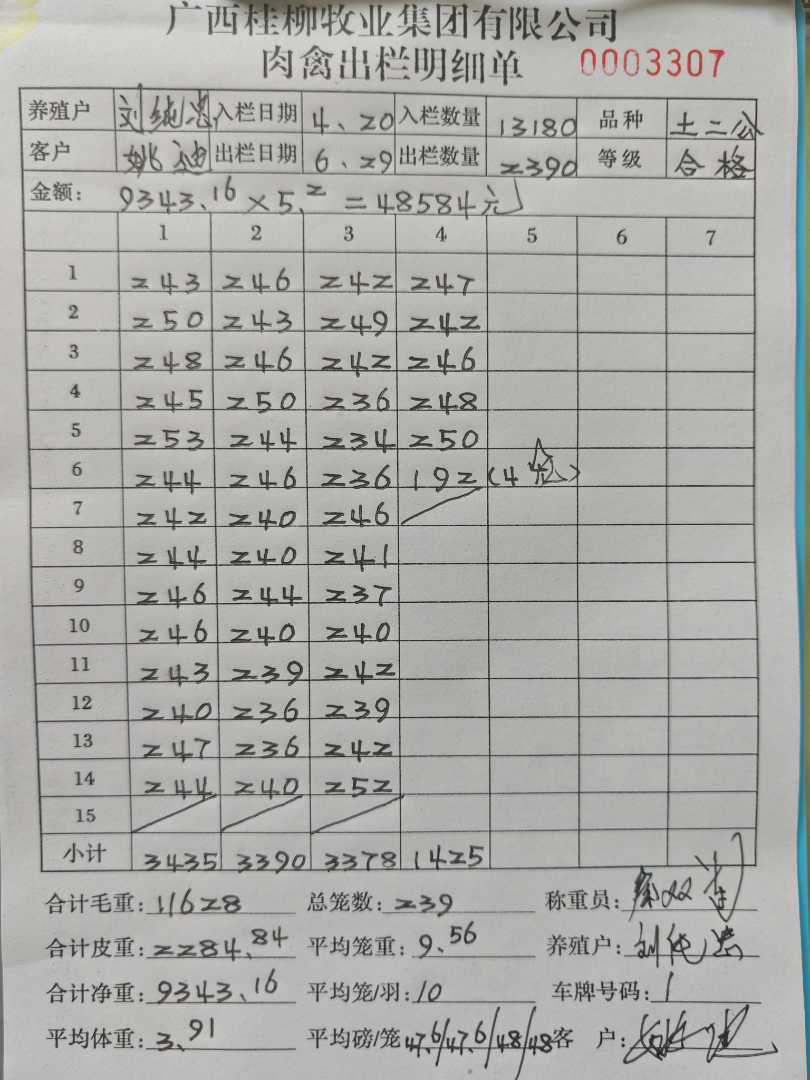 广西桂柳牧业集团有限公司
肉禽出栏明细单 0003307
养殖户 刘纯忠 入栏日期 4、20 入栏数量 13180 品种 土二公
客户 姚迪 出栏日期 6、29 出栏数量 2390 等级 合格
金额: 9343.16×5.2=48584元
1 2 3 4 5 6 7
1 243 246 242 247
2 250 243 249 242
3 248 246 242 246
4 245 250 236 248
5 253 244 234 250
6 244 246 236 192 (4
7 242 240 246
8 244 240 241
9 246 244 237
10 246 240 240
11 243 239 242
12 240 236 239
13 247 236 242
14 244 240 252
15
小计 3435 3390 3378 1425
合计毛重: 11628 总笼数: 239 称重员:
合计皮重: 2284.84 平均笼重: 9.56 养殖户: 刘纯忠
合计净重: 9343.16 平均笼/羽: 10 车牌号码: 1
平均体重: 3.91 平均磅/笼 47.6/47.6/48/48 客 户: